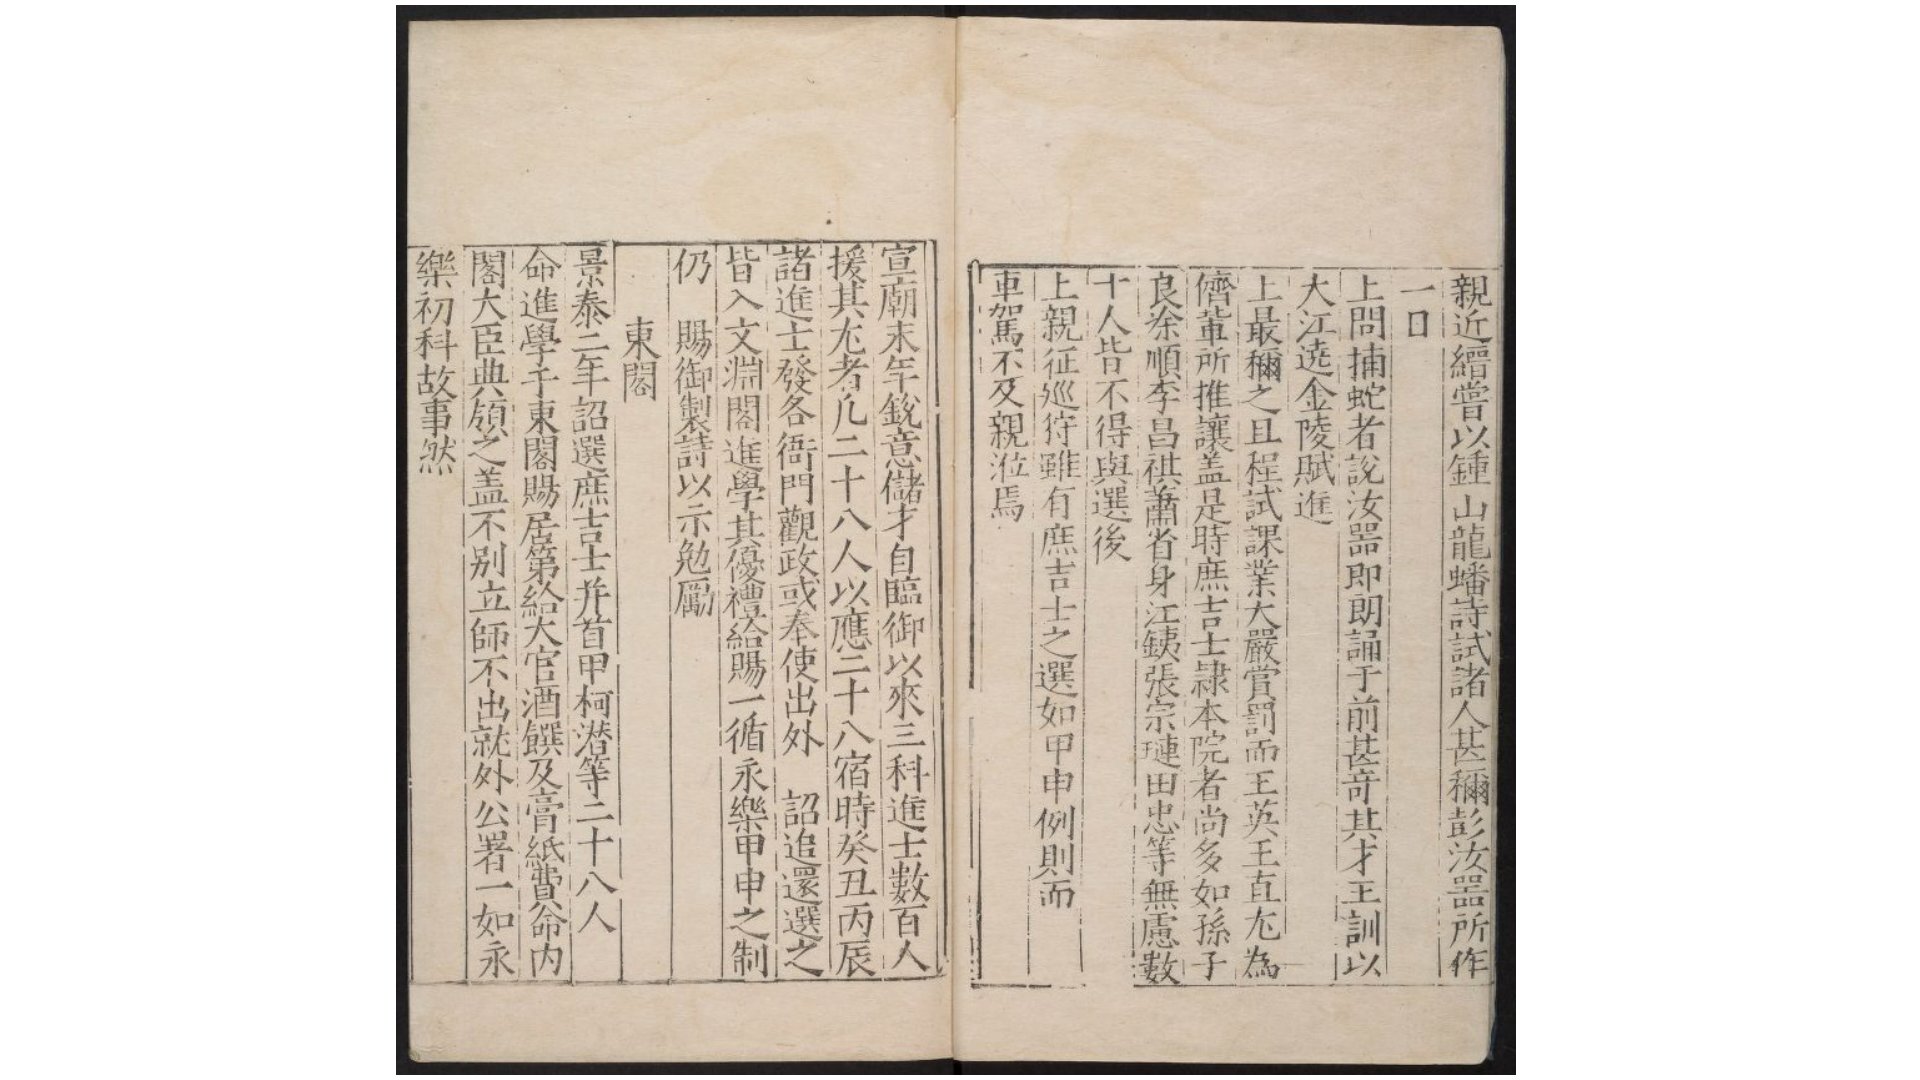 親近縉嘗以鍾山龍蟠詩試諸人甚稱彭汝噐所作
一日
上問捕蛇者說汝噐即朗誦于前甚竒其才王訓以
大江遶金陵賦進
上最稱之且程試課業大嚴賞罰而王英王直尢為
儕輩所推讓盖是時庶吉士隷本院者尚多如孫子
良涂順李昌祺蕭省身江鐵張宗璉田忠等無慮數
十人皆不得與選後
上親征廵狩雖有庶吉士之選如甲申例則而
車駕不及親涖焉
宣廟末年銳意儲才自臨御以來三科進士數百人
援其尢者凢二十八人以應二十八宿時癸丑丙辰
諸進士發各衙門觀政或奉使出外 詔追還選之
皆入文淵閣進學其優禮給賜一循永樂甲申之制
仍 賜御製詩以示勉勵
東閣
景泰二年詔選庶吉士并首甲柯潜等二十八人
命進學于東閣賜居第給大官酒饌及膏紙費命内
閣大臣典領之盖不别立師不出就外公署一如永
樂初科故事然